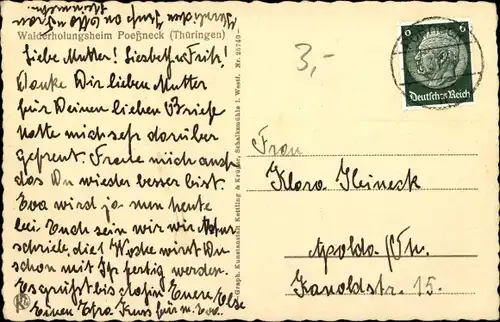 Walderholungsheim Poeßneck (Thüringen)
Liebe Mutter! Liesbeth u. Fritz!
Danke Dir lieben Mutter
für Deinen lieben Brief
hatte mich sehr darüber
gefreut. Freue mich auch
das Du wieder besser bist.
Eva wird ja nun heute
bei Euch sein wir
schriebe, die Woche wirst Du
schon mit Ihr fertig werden.
Es grüßt bis dahin Eure Else
Einen Kuss für u. Eva.
Graph. Kunstanstalt Kettling & Krüger, Schalksmühle i. Westf. Nr. 25749
3,-
6 6
Deutsches Reich
Frau
Klara Heineck
Apolda / Th.
Kanoldstr. 15.